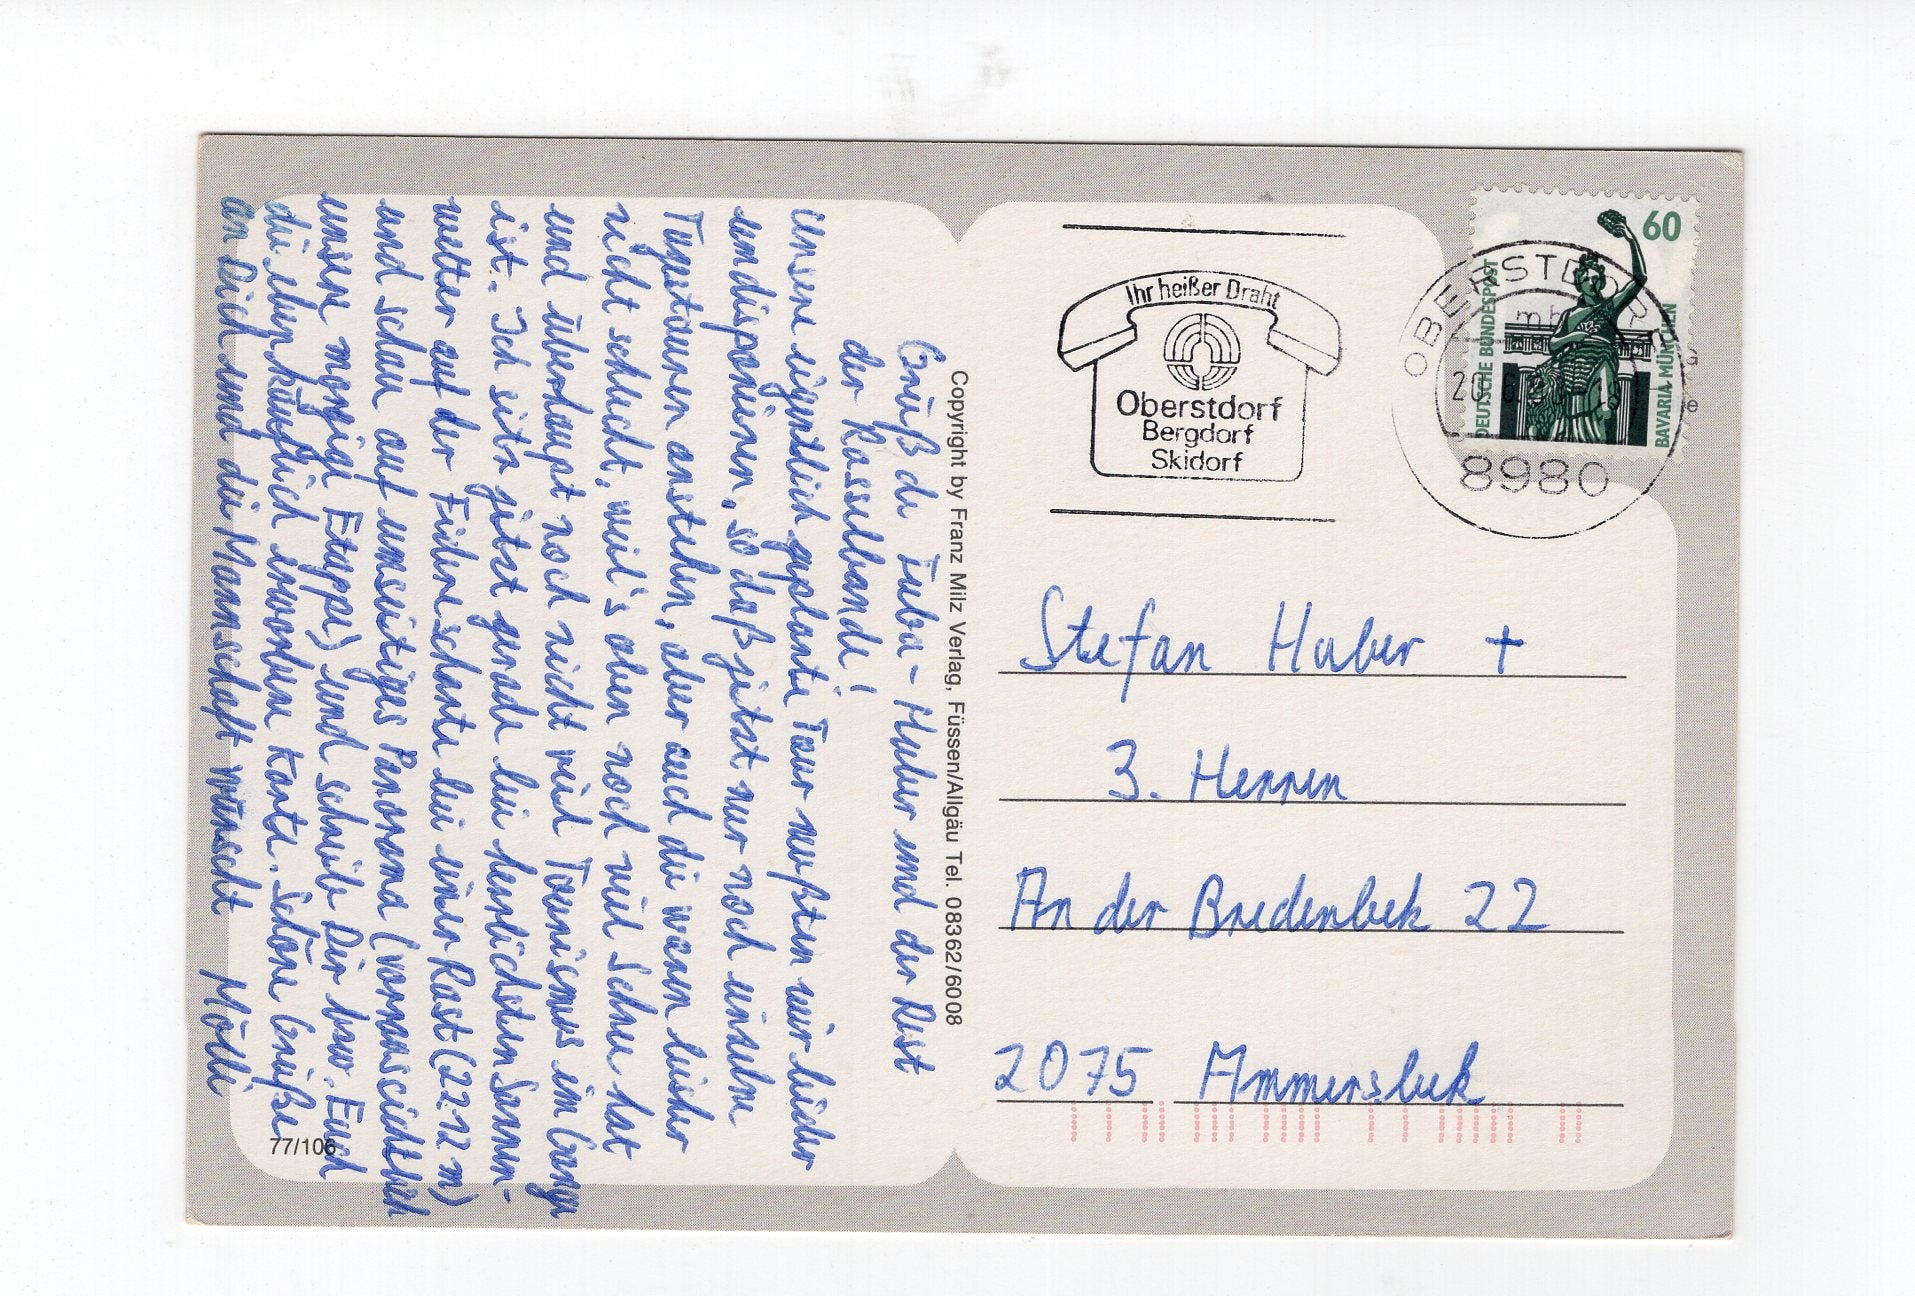 Grüß di Tuba-Huber und der Rest
der Rasselbande!
Unsere eigentlich geplante Tour mußten wir leider
umdisponieren, so daß jetzt nur noch einzelne
Tagestouren anstehn, aber auch die wären leider
nicht schlecht, weil's oben noch viel Schnee hat
und überhaupt noch nicht viel Tourismus im Gange
ist. Ich sitz jetzt gerade bei herrlichsten Sonnen-
wetter auf der Fiderescharte bei einer Rast (2212 m)
und schau auf umseitiges Panorama (voraussichtlich
unsere morgige Etappe) und schreib Dir bzw. Euch
die eben käuflich erworbene Karte. Schöne Grüße
an Dich und die Mannschaft wünscht Mölli
77/106
Copyright by Franz Milz Verlag, Füssen/Allgäu Tel. 08362/6008
Ihr heißer Draht
Oberstdorf
Bergdorf
Skidorf
60
DEUTSCHE BUNDESPOST
BAVARIA MÜNCHEN
OBERSTDORF
8980
Stefan Huber +
3. Herren
An der Bredenbek 22
2075 Ammersbek